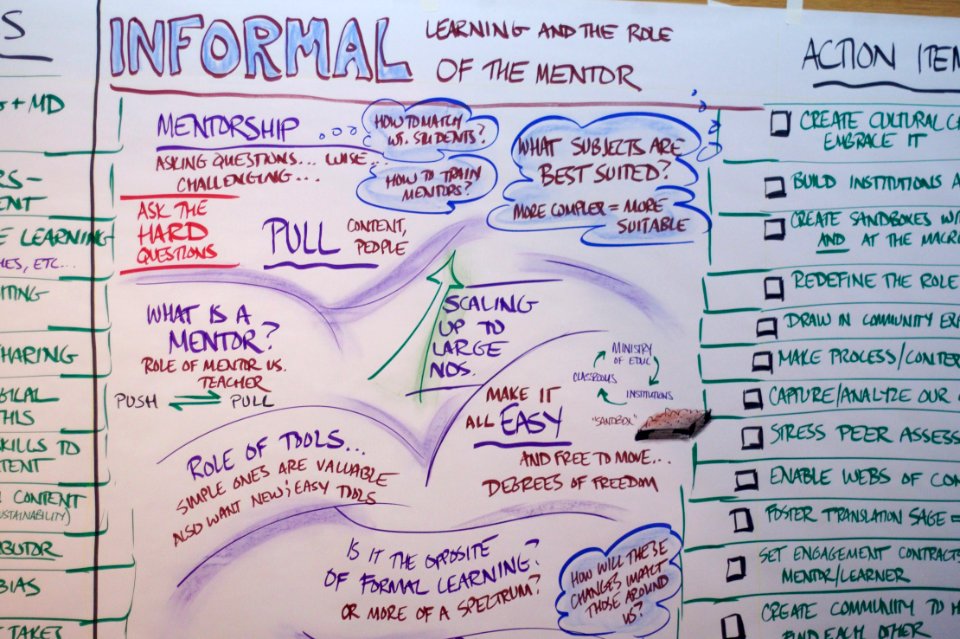 S
+ MD
RS-
ENT
E LEARNING
HES, ETC...
ITING
SHARING
GICAL
THIS
SKILLS TO
TENT
CONTENT
SUSTAINABILITY)
BUTOR
BIAS
T TAKES
INFORMAL
LEARNING AND THE ROLE
OF THE MENTOR
MENTORSHIP
HOW TO MATCH
W. STUDENTS?
ASKING QUESTIONS... WISE...
CHALLENGING...
HOW TO TRAIN
MENTORS?
WHAT SUBJECTS ARE
BEST SUITED?
MORE COMPLEX = MORE
SUITABLE
ASK THE
HARD
QUESTIONS
PULL
CONTENT,
PEOPLE
WHAT IS A
MENTOR?
ROLE OF MENTOR VS.
TEACHER
PUSH
PULL
SCALING
UP TO
LARGE
NOS.
MINISTRY
OF EDUC
CLASSROOMS
INSTITUTIONS
"SANDBOX"
MAKE IT
ALL EASY
AND FREE TO MOVE...
DEGREES OF FREEDOM
ROLE OF TOOLS...
SIMPLE ONES ARE VALUABLE
ALSO WANT NEW; EASY TOOLS
IS IT THE OPPOSITE
OF FORMAL LEARNING?
OR MORE OF A SPECTRUM?
HOW WILL THESE
CHANGES IMPACT
THOSE AROUND
US?
ACTION ITEM
CREATE CULTURAL C
EMBRACE IT
BUILD INSTITUTIONS A
CREATE SANDBOXES WI
AND AT THE MACR
REDEFINE THE ROLE
DRAW IN COMMUNITY EX
MAKE PROCESS/CONTE
CAPTURE/ANALYZE OUR
STRESS PEER ASSESS
ENABLE WEBS OF CON
FOSTER TRANSLATION SAGE =
SET ENGAGEMENT CONTRACTS
MENTOR/LEARNER
CREATE COMMUNITY TO H
FIND EACH OTHER